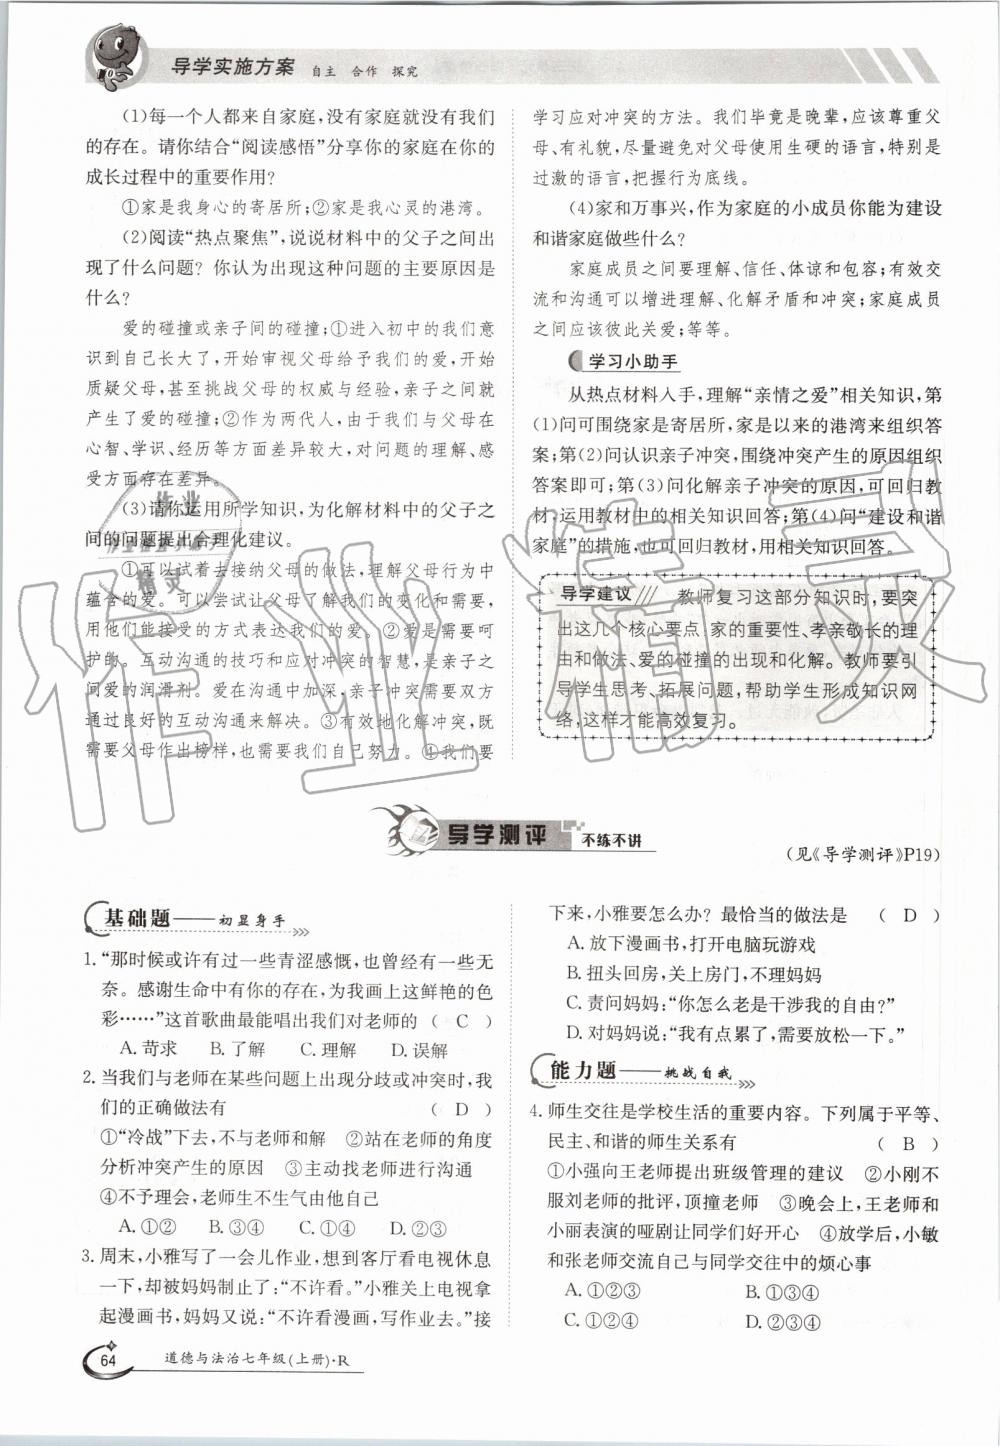 导学实施方案 自主 合作 探究
(1)每一个人都来自家庭,没有家庭就没有我们
的存在。请你结合“阅读感悟”分享你的家庭在你的
成长过程中的重要作用?
①家是我身心的寄居所;②家是我心灵的港湾。
(2)阅读“热点聚焦”,说说材料中的父子之间出
现了什么问题? 你认为出现这种问题的主要原因是
什么?
爱的碰撞或亲子间的碰撞;①进入初中的我们意
识到自己长大了,开始审视父母给予我们的爱,开始
质疑父母,甚至挑战父母的权威与经验,亲子之间就
产生了爱的碰撞;②作为两代人,由于我们与父母在
心智、学识、经历等方面差异较大,对问题的理解、感
受方面存在差异。
(3)请你运用所学知识,为化解材料中的父子之
间的问题提出合理化建议。
①可以试着去接纳父母的做法,理解父母行为中
蕴含的爱。可以尝试让父母了解我们的变化和需要,
用他们能接受的方式表达我们的爱。②爱是需要呵
护的。互动沟通的技巧和应对冲突的智慧,是亲子之
间爱的润滑剂。爱在沟通中加深,亲子冲突需要双方
通过良好的互动沟通来解决。③有效地化解冲突,既
需要父母作出榜样,也需要我们自己的努力。④我们要
学习应对冲突的方法。我们毕竟是晚辈,应该尊重父
母、有礼貌,尽量避免对父母使用生硬的语言,特别是
过激的语言,把握行为底线。
(4)家和万事兴,作为家庭的小成员你能为建设
和谐家庭做些什么?
家庭成员之间要理解、信任、体谅和包容;有效交
流和沟通可以增进理解、化解矛盾和冲突;家庭成员
之间应该彼此关爱;等等。
学习小助手
从热点材料入手,理解“亲情之爱”相关知识,第
(1)问可围绕家是寄居所,家是以来的港湾来组织答
案;第(2)问认识亲子冲突,围绕冲突产生的原因组织
答案即可;第(3)问化解亲子冲突的原因,可回归教
材,运用教材中的相关知识回答;第(4)问“建设和谐
家庭”的措施,也可回归教材,用相关知识回答。
导学建议/// 教师复习这部分知识时,要突
出这几个核心要点:家的重要性、孝亲敬长的理
由和做法、爱的碰撞的出现和化解。教师要引
导学生思考、拓展问题,帮助学生形成知识网
络,这样才能高效复习。
导学测评 不练不讲
(见《导学测评》P19)
基础题——初显身手
1. “那时候或许有过一些青涩感慨,也曾经有一些无
奈。感谢生命中有你的存在,为我画上这鲜艳的色
彩……”这首歌曲最能唱出我们对老师的 ( C )
A. 苛求 B. 了解 C. 理解 D. 误解
2. 当我们与老师在某些问题上出现分歧或冲突时,我
们的正确做法有 ( D )
①“冷战”下去,不与老师和解 ②站在老师的角度
分析冲突产生的原因 ③主动找老师进行沟通
④不予理会,老师生不生气由他自己
A. ①② B. ③④ C. ①④ D. ②③
3. 周末,小雅写了一会儿作业,想到客厅看电视休息
一下,却被妈妈制止了:“不许看。”小雅关上电视拿
起漫画书,妈妈又说:“不许看漫画,写作业去。”接
下来,小雅要怎么办? 最恰当的做法是 ( D )
A. 放下漫画书,打开电脑玩游戏
B. 扭头回房,关上房门,不理妈妈
C. 责问妈妈:“你怎么老是干涉我的自由?”
D. 对妈妈说:“我有点累了,需要放松一下。”
能力题——挑战自我
4. 师生交往是学校生活的重要内容。下列属于平等、
民主、和谐的师生关系有 ( B )
①小强向王老师提出班级管理的建议 ②小刚不
服刘老师的批评,顶撞老师 ③晚会上,王老师和
小丽表演的哑剧让同学们好开心 ④放学后,小敏
和张老师交流自己与同学交往中的烦心事
A. ①②③ B. ①③④
C. ①②④ D. ②③④
64 道德与法治七年级(上册)·R
作业精灵